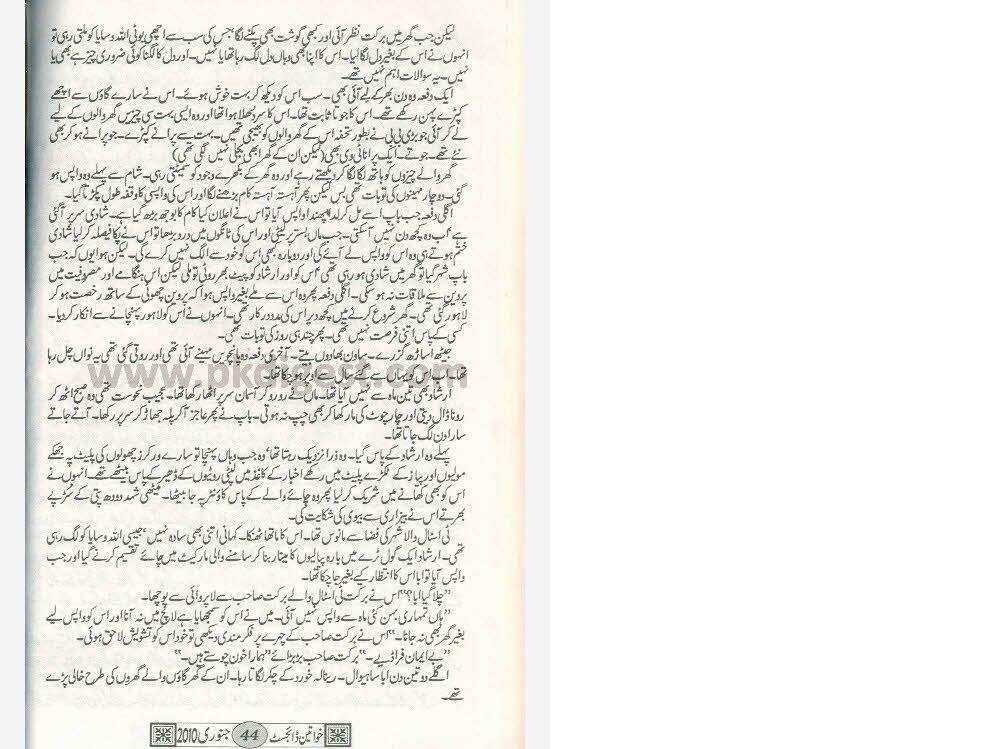 لیکن جب گھر میں برکت نظر آئی اور کبھی گوشت بھی پکنے لگا، جس کی سب سے اچھی بوٹی اللہ وسایا کو ملتی رہی تو
انہوں نے اس کے بغیر دل لگا لیا۔ اس کا اپنا بھی وہاں دل لگ رہا تھا یا نہیں۔ اور دل کا لگنا کوئی ضروری چیز ہے بھی یا
نہیں۔ یہ سوالات اہم نہیں تھے۔
ایک دفعہ وہ دن بھر کے لیے آئی بھی۔ سب اس کو دیکھ کر بہت خوش ہوئے۔ اس نے سارے گاؤں سے اچھے
کپڑے پہن رکھے تھے۔ اس کا جوتا ثابت تھا۔ اس کا سر دھلا ہوا تھا اور وہ ایسی بہت سی چیزیں گھر والوں کے لیے
لے کر آئی جو بڑی بی بی نے بطور تحفہ اس کے گھر والوں کو بھیجی تھیں۔ بہت سے پرانے کپڑے۔ جو پرانے ہو کر بھی
نئے تھے۔ جوتے۔ ایک پرانا ٹی وی بھی (لیکن ان کے گھر ابھی بجلی نہیں لگی تھی)
گھر والے چیزوں کو ہاتھ لگا لگا کر دیکھتے رہے اور وہ گھر کے بکھرے وجود کو سمیٹتی رہی۔ شام سے پہلے وہ واپس ہو
گئی۔ دو چار مہینوں کی تو بات تھی بس لیکن پھر آہستہ آہستہ کام بڑھنے لگا اور اس کی واپسی کا وقفہ طول پکڑتا گیا۔
اگلی دفعہ جب باپ اسے مل کر لدا پھندا واپس آیا تو اس نے اعلان کیا کام کا بوجھ بڑھ گیا ہے۔ شادی سر پر آ گئی
ہے اب وہ کچھ دن نہیں آ سکتی۔ جب ماں بستر پر لیٹی اور اس کی ٹانگوں میں درد بڑھا تو اس نے پکا فیصلہ کر لیا شادی
ختم ہوتے ہی وہ اس کو واپس لے آئے گی اور دوبارہ بھی اس کو خود سے الگ نہیں کرے گی۔ لیکن ہوا یوں کہ جب
باپ شہر گیا تو گھر میں شادی ہو رہی تھی اس کو اور ارشاد کو پیٹ بھر روٹی تو ملی لیکن اس ہنگامے اور مصروفیت میں
پروین سے ملاقات نہ ہو سکی۔ اگلی دفعہ پھر وہ اس سے ملے بغیر واپس ہوا کہ پروین چھوٹی کے ساتھ رخصت ہو کر
لاہور گئی تھی۔ گھر شروع کرنے میں کچھ دیر اس کی مدد درکار تھی۔ انہوں نے اس کو لاہور پہنچانے سے انکار کر دیا۔
کسی کے پاس اتنی فرصت نہیں تھی۔ پھر چند ہی روز کی تو بات تھی۔
جیٹھ اساڑھ گزرے۔ ساون بھادوں بیتے۔ آخری دفعہ وہ پانچویں مہینے آئی تھی اور روتی گئی تھی یہ نواں چل رہا
تھا۔ اب اس کو یہاں سے گئے سال سے اوپر ہو چکا تھا۔
www.pkdigest.com
ارشاد بھی تین ماہ سے نہیں آیا تھا۔ ماں نے رو رو کر آسمان سر پر اٹھا رکھا تھا۔ عجیب نحوست تھی وہ صبح اٹھ کر
رونا ڈال دیتی اور چار چوٹ کی مار کھا کر بھی چپ نہ ہوتی۔ باپ نے پھر عاجز آ کر پلہ جھاڑ کر سر پر رکھا۔ آتے جاتے
سارا دن لگ جاتا تھا۔
پہلے وہ ارشاد کے پاس گیا۔ وہ ذرا نزدیک رہتا تھا، وہ جب وہاں پہنچا تو سارے ورکرز چھولوں کی پلیٹ پہ جھکے
مولیوں اور پیاز کے ٹکڑے پلیٹ میں رکھے اخبار کے کاغذ میں لپٹی روٹیوں کے ڈھیر کے پاس بیٹھے تھے۔ انہوں نے
اس کو بھی کھانے میں شریک کر لیا پھر وہ چائے والے کے پاس کاؤنٹر پہ جا بیٹھا۔ میٹھی شہد دودھ پتی کے سُڑپے
بھرتے اس نے بیزاری سے بیوی کی شکایت کی۔
ٹی اسٹال والا شہر کی فضا سے مانوس تھا۔ اس کا ماتھا ٹھنکا۔ کہانی اتنی بھی سادہ نہیں، جیسی اللہ وسایا کو لگ رہی
تھی۔ ارشاد ایک گول ٹرے میں بارہ پیالیوں کا مینار بنا کر سامنے والی مارکیٹ میں چائے تقسیم کرنے گیا اور جب
واپس آیا تو ابا اس کا انتظار کیے بغیر جا چکا تھا۔
"چلا گیا ابا؟" اس نے برکت ٹی اسٹال والے برکت صاحب سے لاپروائی سے پوچھا۔
"ہاں تمہاری بہن کئی ماہ سے واپس نہیں آئی۔ میں نے اس کو سمجھایا ہے لالچ میں نہ آنا اور اس کو واپس لیے
بغیر گھر بھی نہ جانا۔" اس نے برکت صاحب کے چہرے پر فکر مندی دیکھی تو خود اس کو تشویش لاحق ہوئی۔
"بے ایمان فراڈیے۔" برکت صاحب بڑبڑائے "ہمارا خون چوستے ہیں۔"
اگلے دو تین دن ابا ساہیوال۔ رینالہ خورد کے چکر لگاتا رہا۔ ان کے گھر گاؤں والے گھروں کی طرح خالی پڑے
تھے۔
خواتین ڈائجسٹ 44 جنوری 2010